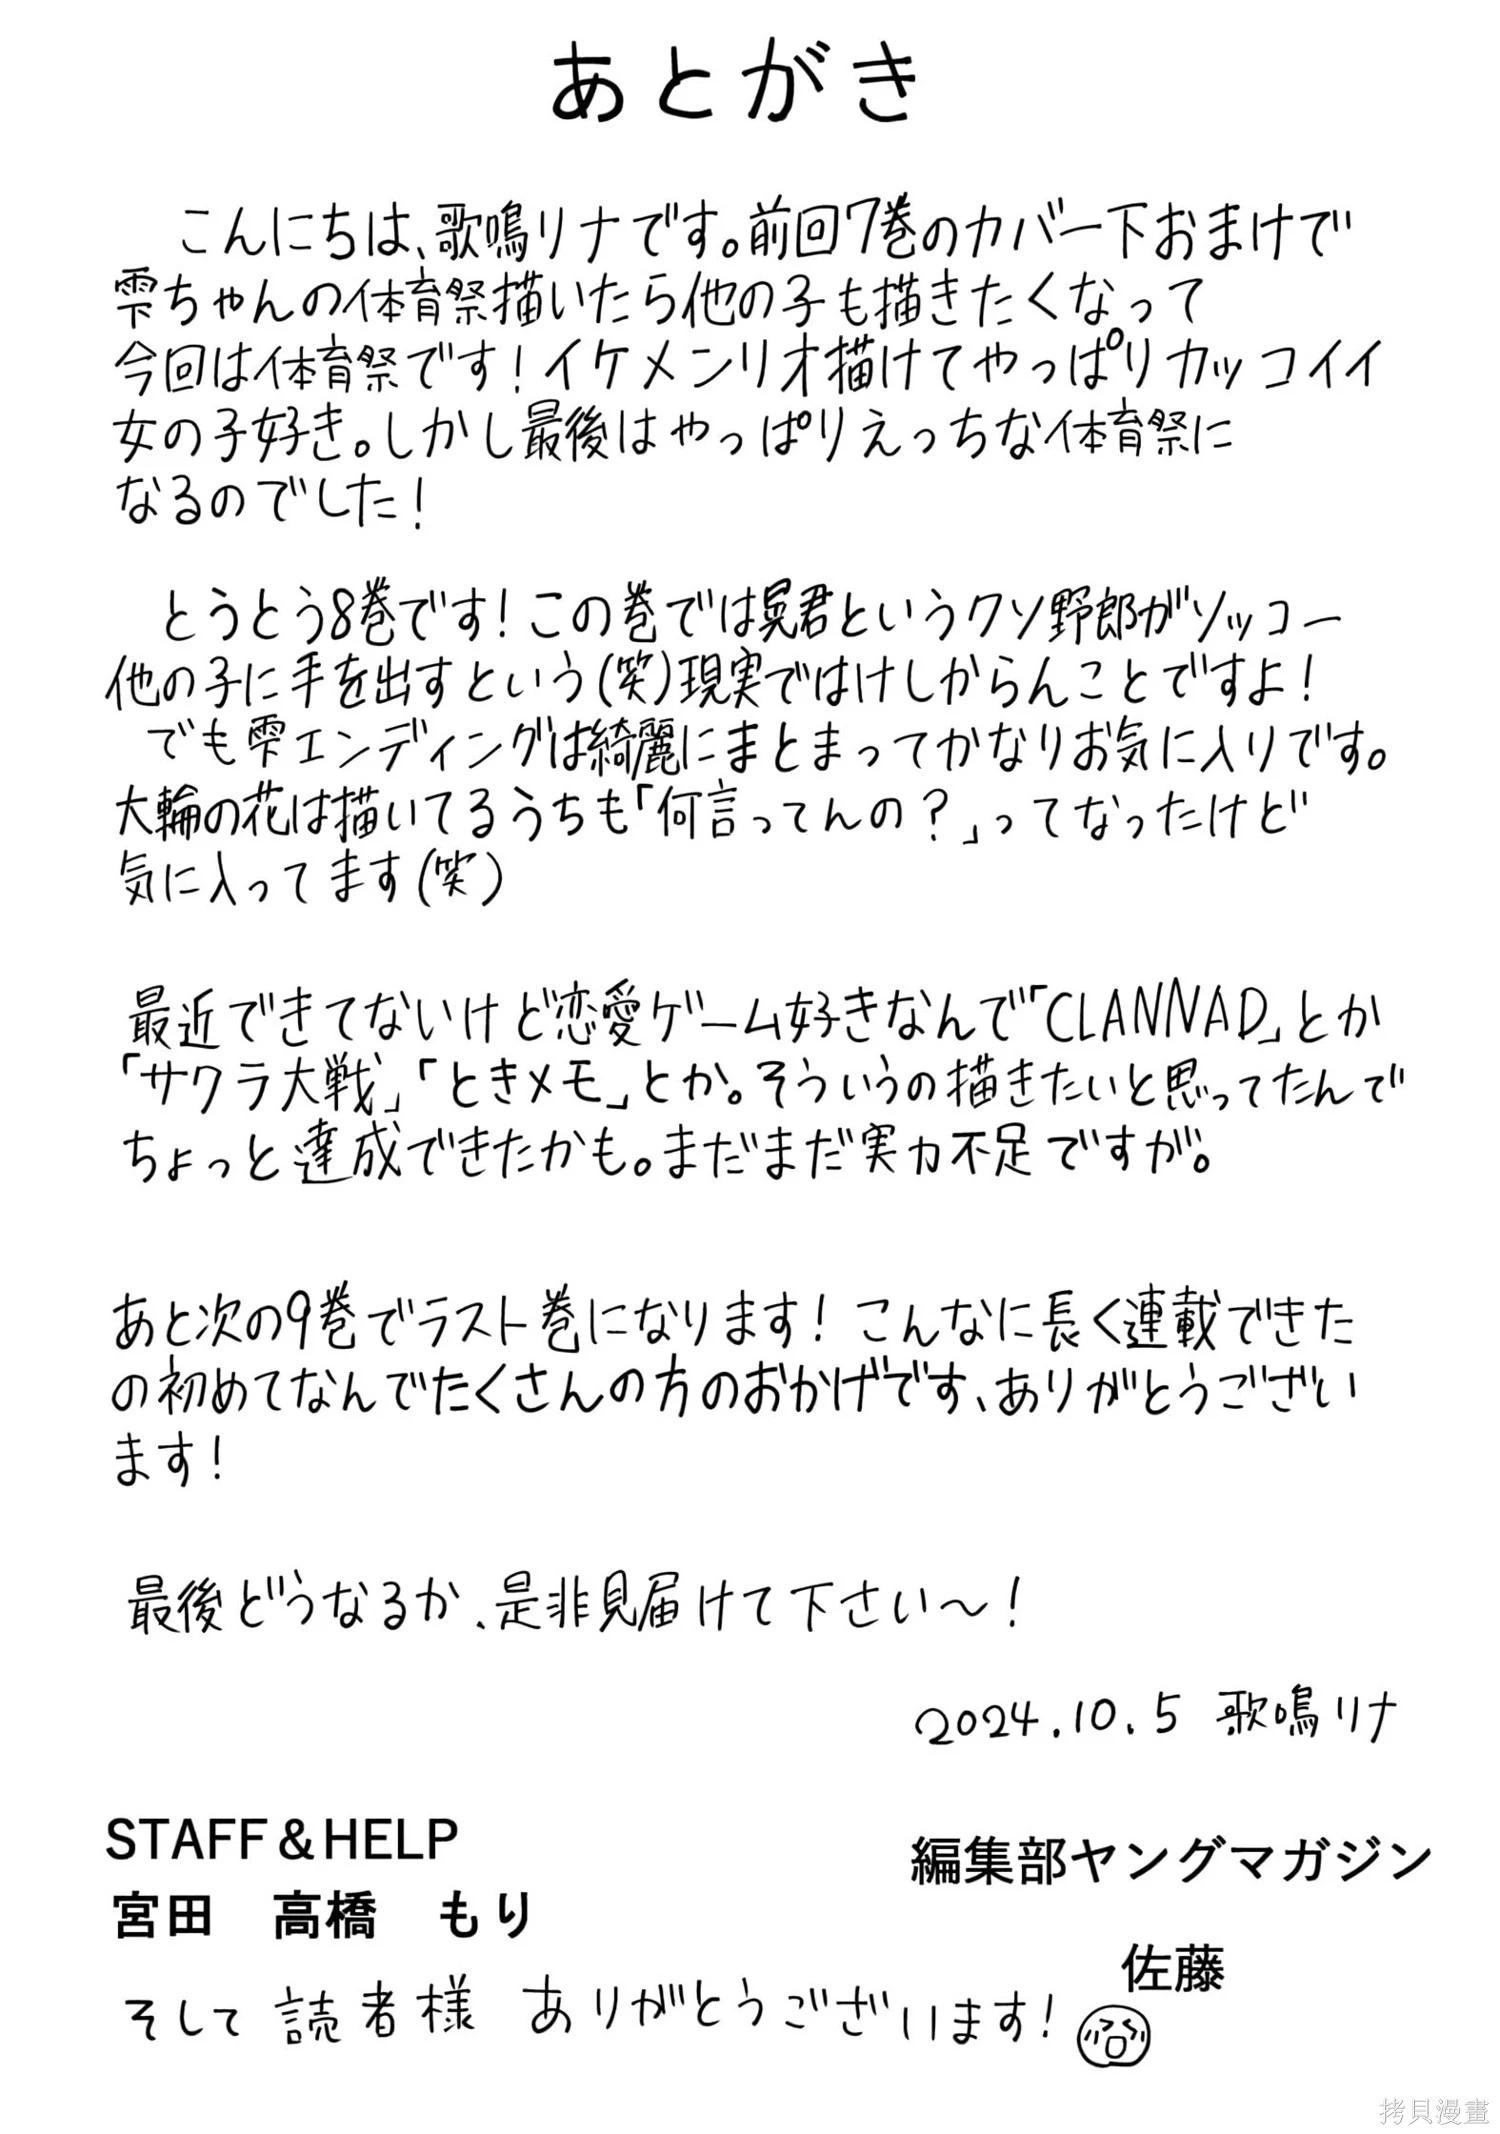 あとがき
こんにちは、歌鳴リナです。前回7巻のカバー下おまけで
雫ちゃんの体育祭描いたら他の子も描きたくなって
今回は体育祭です！イケメンリオ描けてやっぱりカッコイイ
女の子好き。しかし最後はやっぱりえっちな体育祭に
なるのでした！
とうとう8巻です！この巻では晃君というクソ野郎がソッコー
他の子に手を出すという(笑)現実ではけしからんことですよ！
でも雫エンディングは綺麗にまとまってかなりお気に入りです。
大輪の花は描いてるうちも「何言ってんの？」ってなったけど
気に入ってます(笑)
最近できてないけど恋愛ゲーム好きなんで「CLANNAD」とか
「サクラ大戦」「ときメモ」とか。そういうの描きたいと思ってたんで
ちょっと達成できたかも。まだまだ実力不足ですが。
あと次の9巻でラスト巻になります！こんなに長く連載できた
の初めてなんでたくさんの方のおかげです、ありがとうござい
ます！
最後どうなるか、是非見届けて下さい〜！
2024.10.5 歌鳴リナ
STAFF＆HELP
宮田　高橋　もり
編集部ヤングマガジン
佐藤
そして 読者様 ありがとうございます！
拷貝漫畫